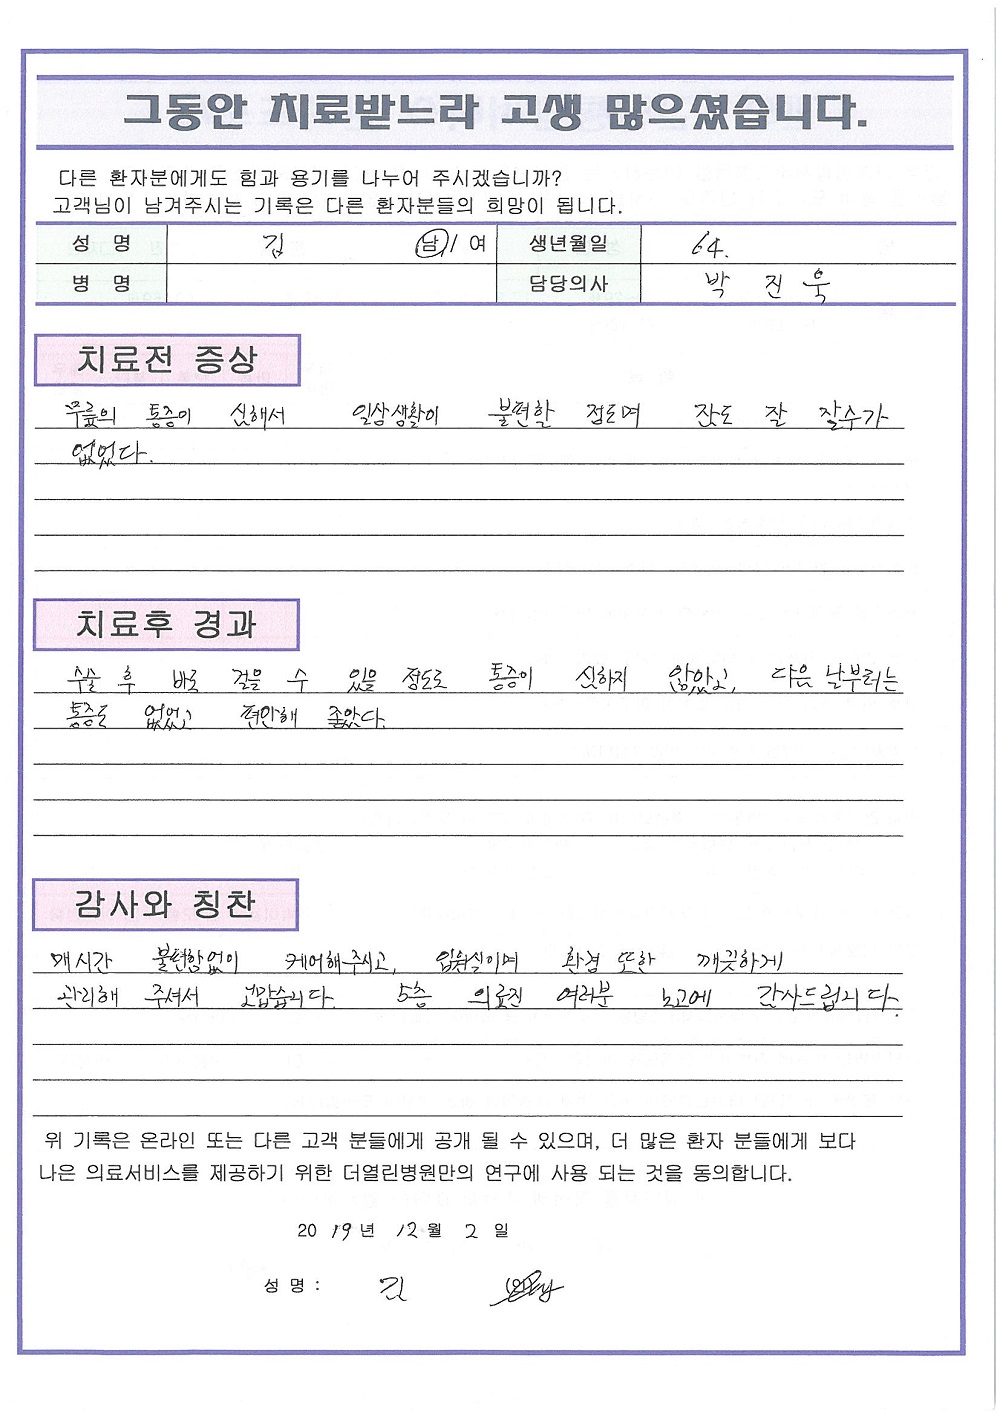 그동안 치료받느라 고생 많으셨습니다.
다른 환자분에게도 힘과 용기를 나누어 주시겠습니까?
고객님이 남겨주시는 기록은 다른 환자분들의 희망이 됩니다.
성 명 김 남 / 여 생년월일 64.
병 명 담당의사 박 진 욱
치료전 증상
무릎의 통증이 심해서 일상생활이 불편할 정도며 잠도 잘 잘수가
없었다.
치료후 경과
수술 후 바로 걸을 수 있을 정도로 통증이 심하지 않았고, 다음 날부터는
통증도 없었고 편안해 좋았다.
감사와 칭찬
매시간 불편함없이 케어해주시고, 입원실이며 환경 또한 깨끗하게
관리해 주셔서 고맙습니다. 5층 의료진 여러분 노고에 감사드립니다.
위 기록은 온라인 또는 다른 고객 분들에게 공개 될 수 있으며, 더 많은 환자 분들에게 보다
나은 의료서비스를 제공하기 위한 더열린병원만의 연구에 사용 되는 것을 동의합니다.
2019년 12월 2일
성 명 : 김